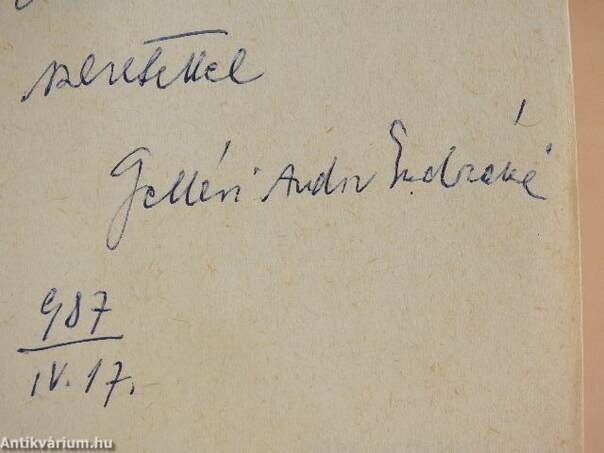 szeretettel
Gelléri Andor Endréné
987
IV. 17.
Antikvárium.hu